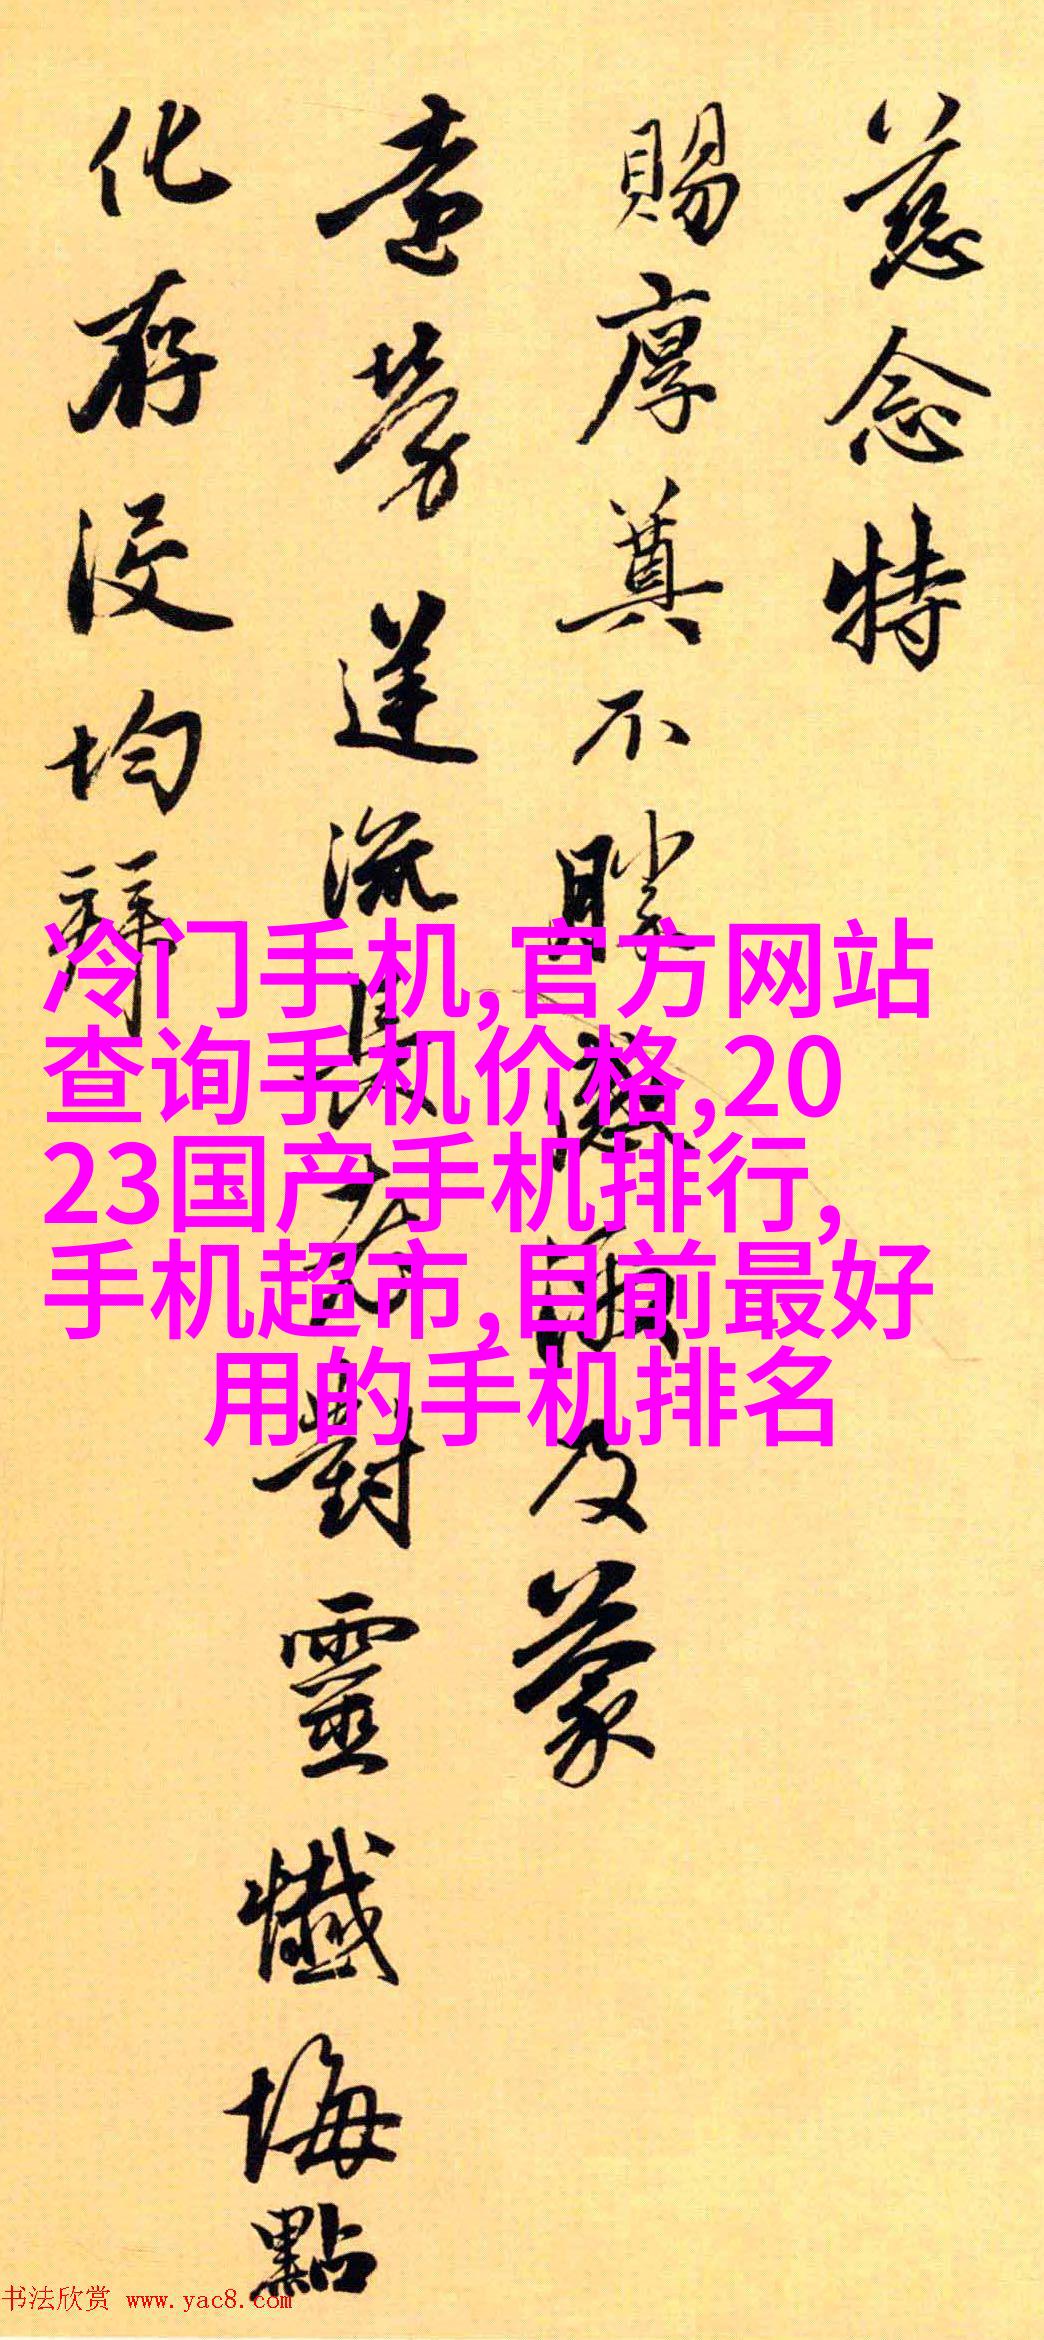 慈念特
賜厚奠不勝感激及蒙
遠勞送流長老對靈懺悔點
化存没均拜
冷门手机,官方网站
查询手机价格,20
23国产手机排行,
手机超市,目前最好
用的手机排名
书法欣赏 www.yac8.com